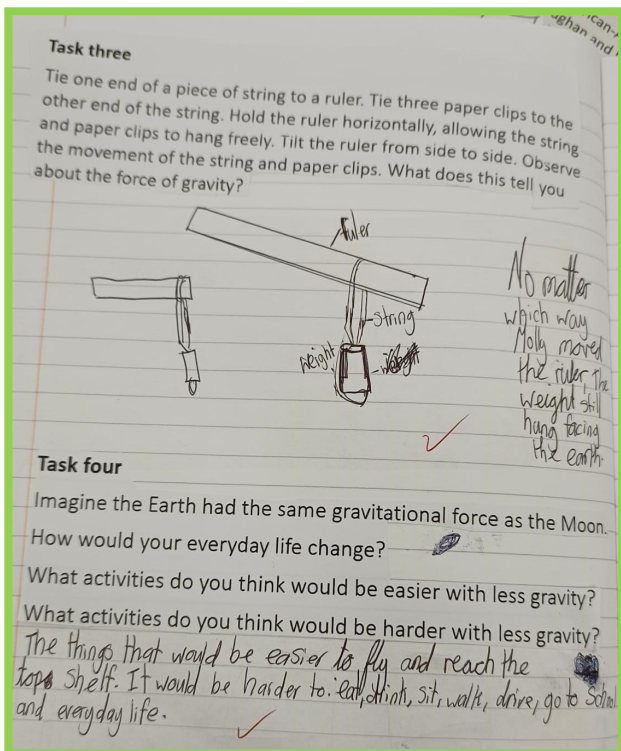 ican-
ghan and
Task three
Tie one end of a piece of string to a ruler. Tie three paper clips to the
other end of the string. Hold the ruler horizontally, allowing the string
and paper clips to hang freely. Tilt the ruler from side to side. Observe
the movement of the string and paper clips. What does this tell you
about the force of gravity?
ruler
string
height
No matter
which way
Molly moved
the ruler, The
weight still
hang facing
the earth.
Task four
Imagine the Earth had the same gravitational force as the Moon.
How would your everyday life change?
What activities do you think would be easier with less gravity?
What activities do you think would be harder with less gravity?
The things that would be easier to fly and reach the
tops shelf. It would be harder to: eat, drink, sit, walk, drive, go to School
and everyday life.